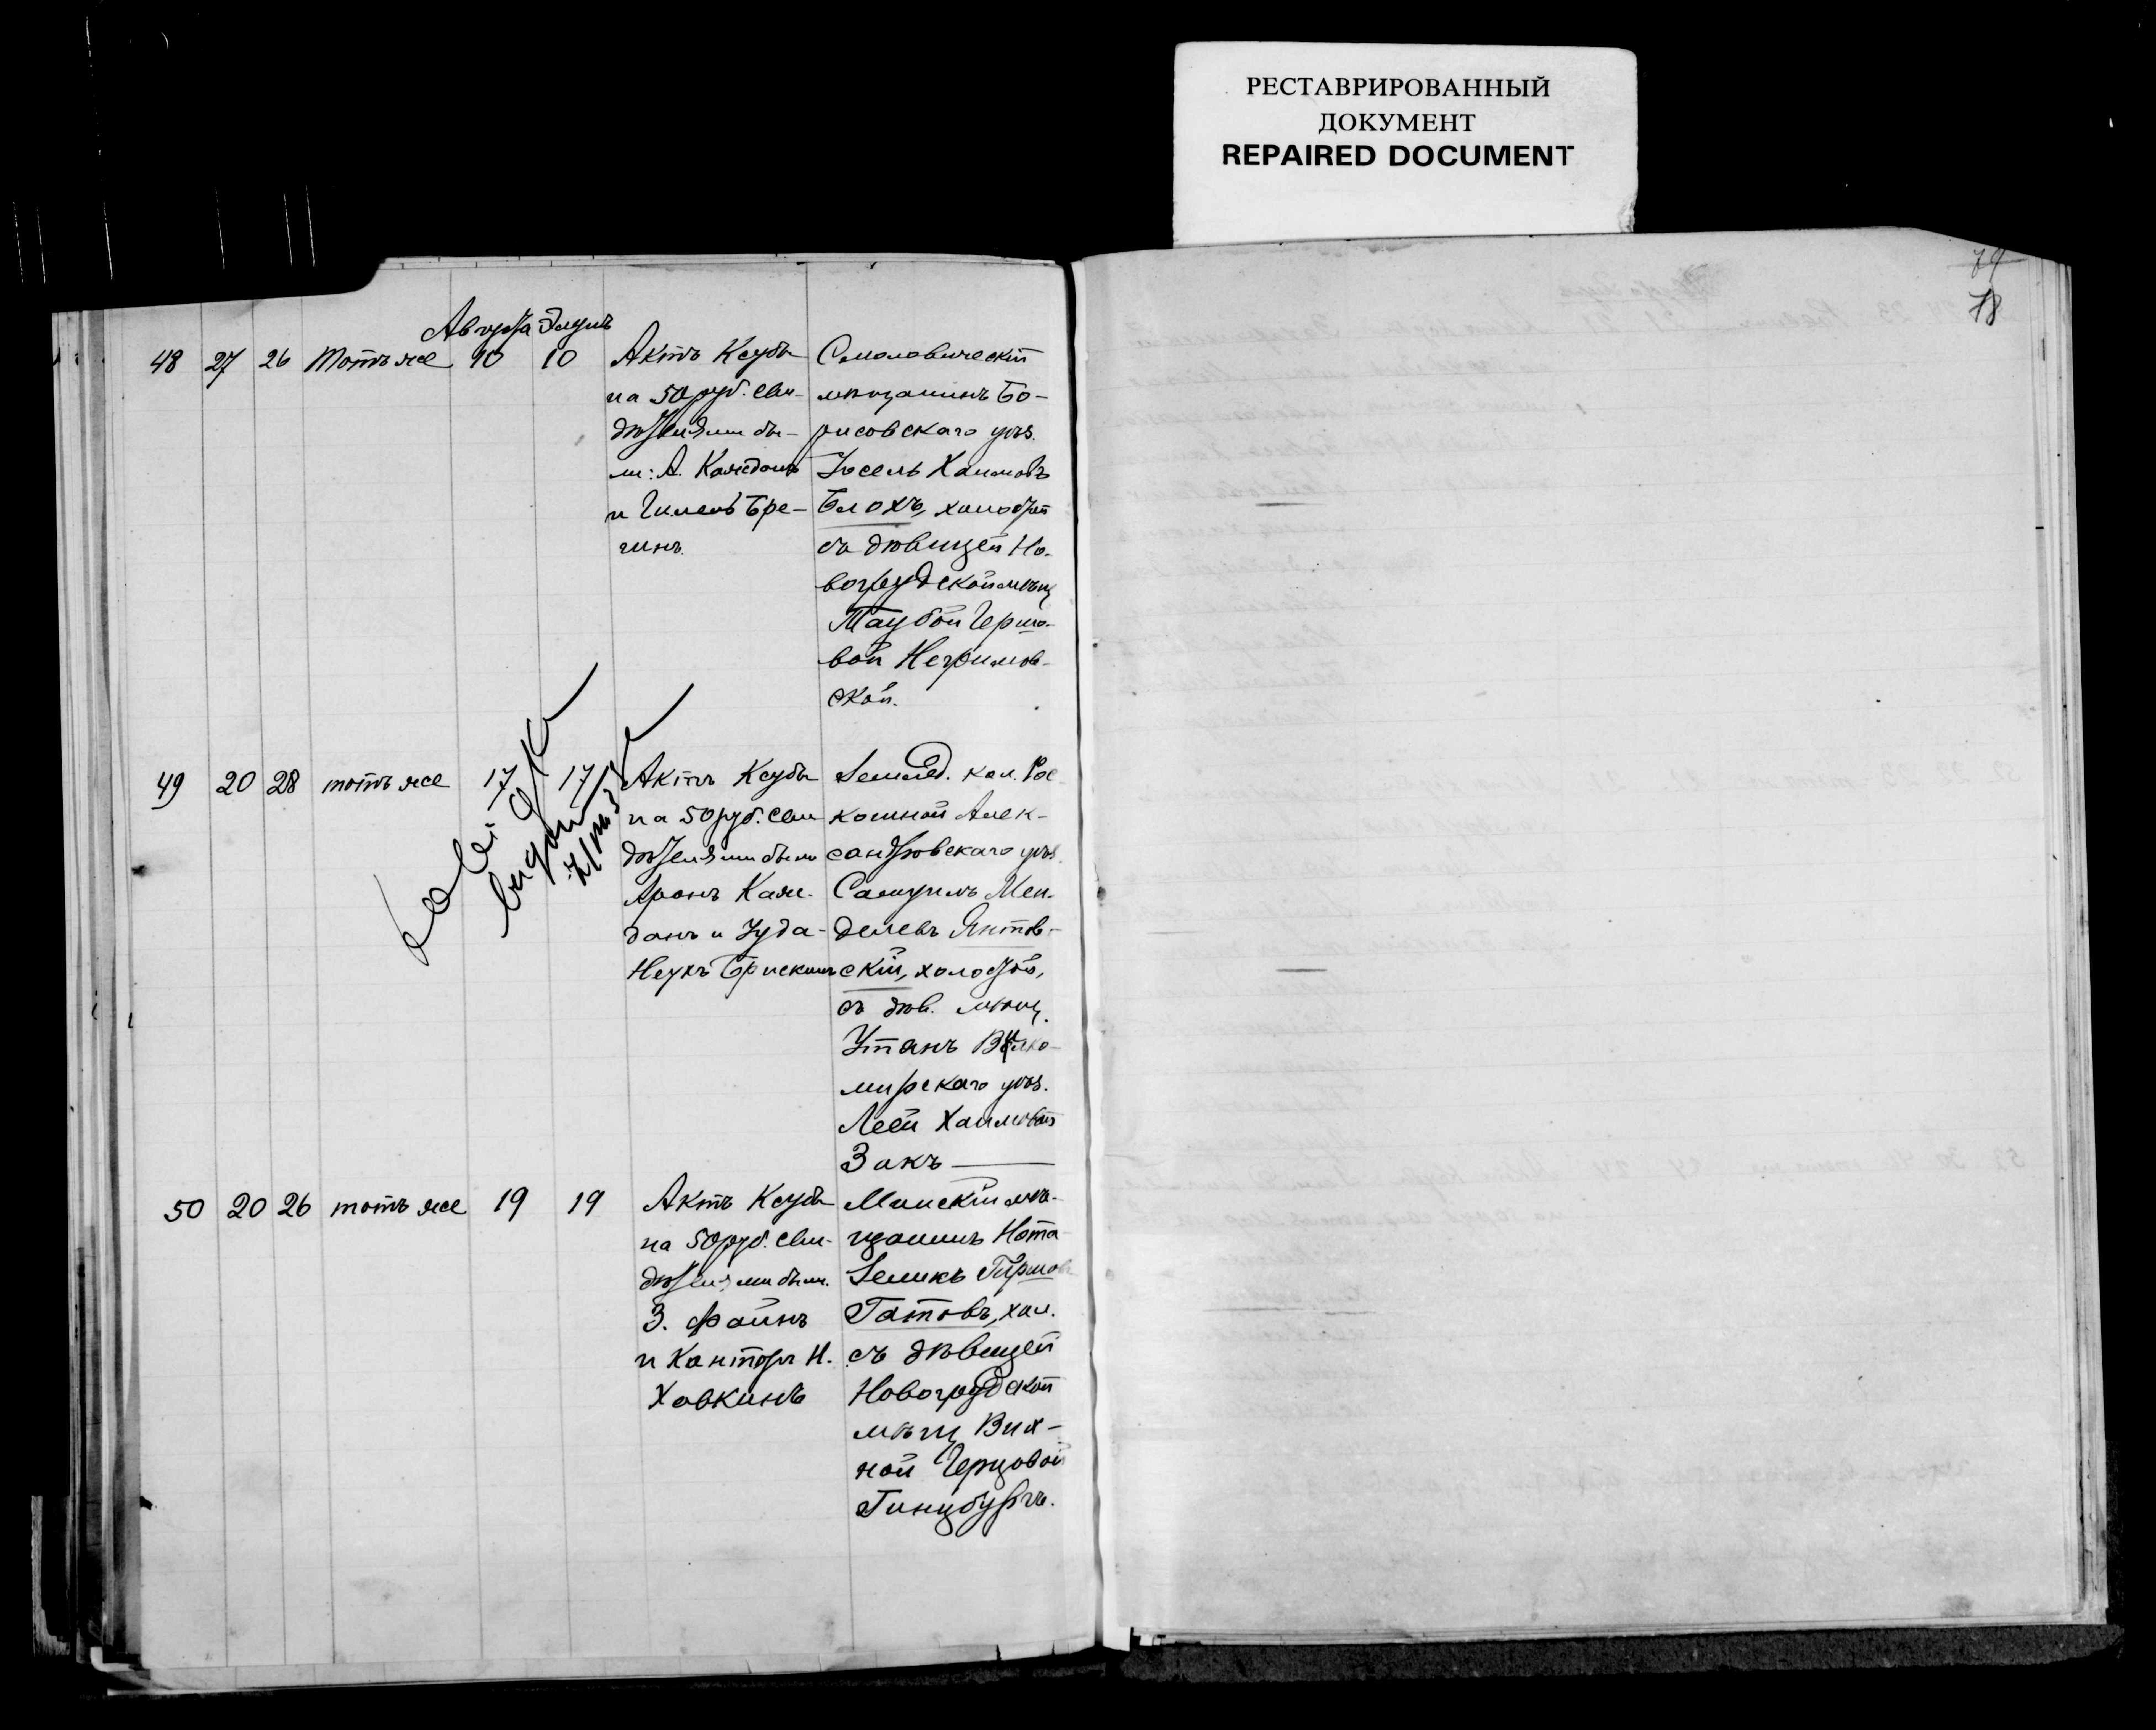 РЕСТАВРИРОВАННЫЙ
ДОКУМЕНТ
REPAIRED DOCUMENT
18
Августа Элулъ
48 27 26 Тотъ же 10 10
Актъ Ксубы
на 50 руб. сви-
дѣтелями бы-
ли: А. Каждань
и Гилель Бре-
гинъ.
Смолевическій
мѣщанинъ Бо-
рисовскаго уѣз.
Іосель Хаимовъ
Блохъ, холостой
съ дѣвицей Но-
вогрудской мѣщ
Таубой Гершо-
вой Негримов-
ской.
49 20 28 тотъ же 17 17
Актъ Ксубы
на 50 руб. сви
дѣтелями были
Аронъ Каж-
данъ и Іуда-
Неухъ Брискинъ
Землед. кол. Рос
кошной Алек-
сандровскаго уѣз.
Самуилъ Мен-
делевъ Янтов-
скій, холостой,
съ дѣв. мѣщ.
Утянъ Вилко-
мирскаго уѣз.
Леей Хаимовой
Закъ
копія
выдана
50 20 26 тотъ же 19 19
Актъ Ксубы
на 50 руб. сви-
дѣтелями были.
З. Файнъ
и Канторъ Н.
Хавкинъ
Минскій мѣ-
щанинъ Нота
Зеликъ Гиршов
Гатовъ, хол.
съ дѣвицей
Новогрудской
мѣщ Вих-
ной Герцовой
Гинцбургъ.